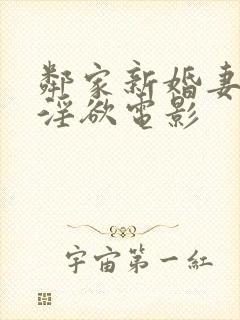 鄰家新婚妻
淫欲電影
宇宙第一紅